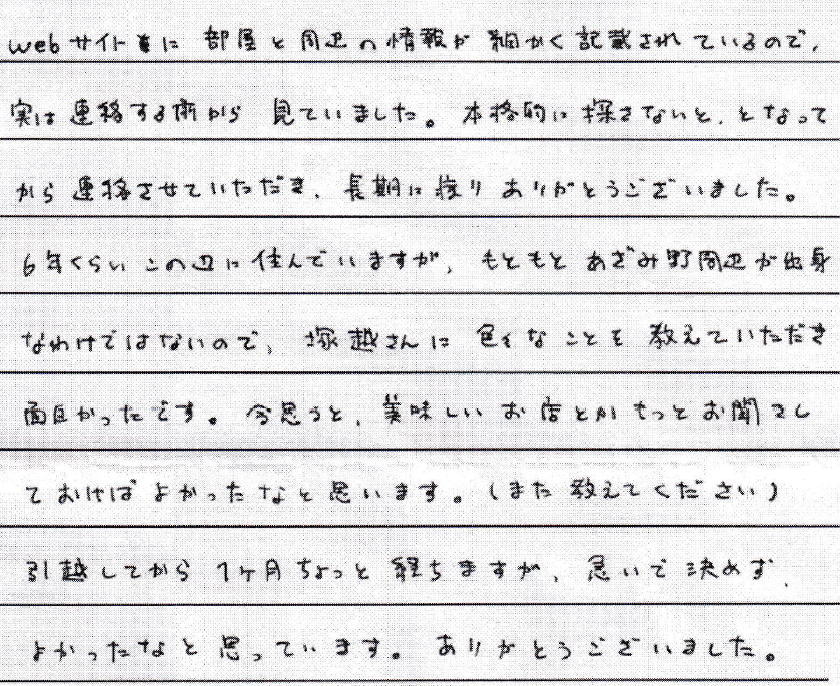 webサイトに 部屋と周辺の情報が 細かく記載されているので、
実は連絡する前から 見ていました。本格的に探さないと、となって
から連絡させていただき、長期に渡り ありがとうございました。
6年くらいこの辺に住んでいますが、もともと あざみ野周辺が出身
なわけではないので、塚越さんに 色々なことを 教えていただき
面白かったです。今思うと、美味しい お店とか もっとお聞きし
ておけば よかったなと思います。(また 教えてください)
引越してから 1ヶ月ちょっと 経ちますが、急いで決めず、
よかったなと 思っています。ありがとうございました。